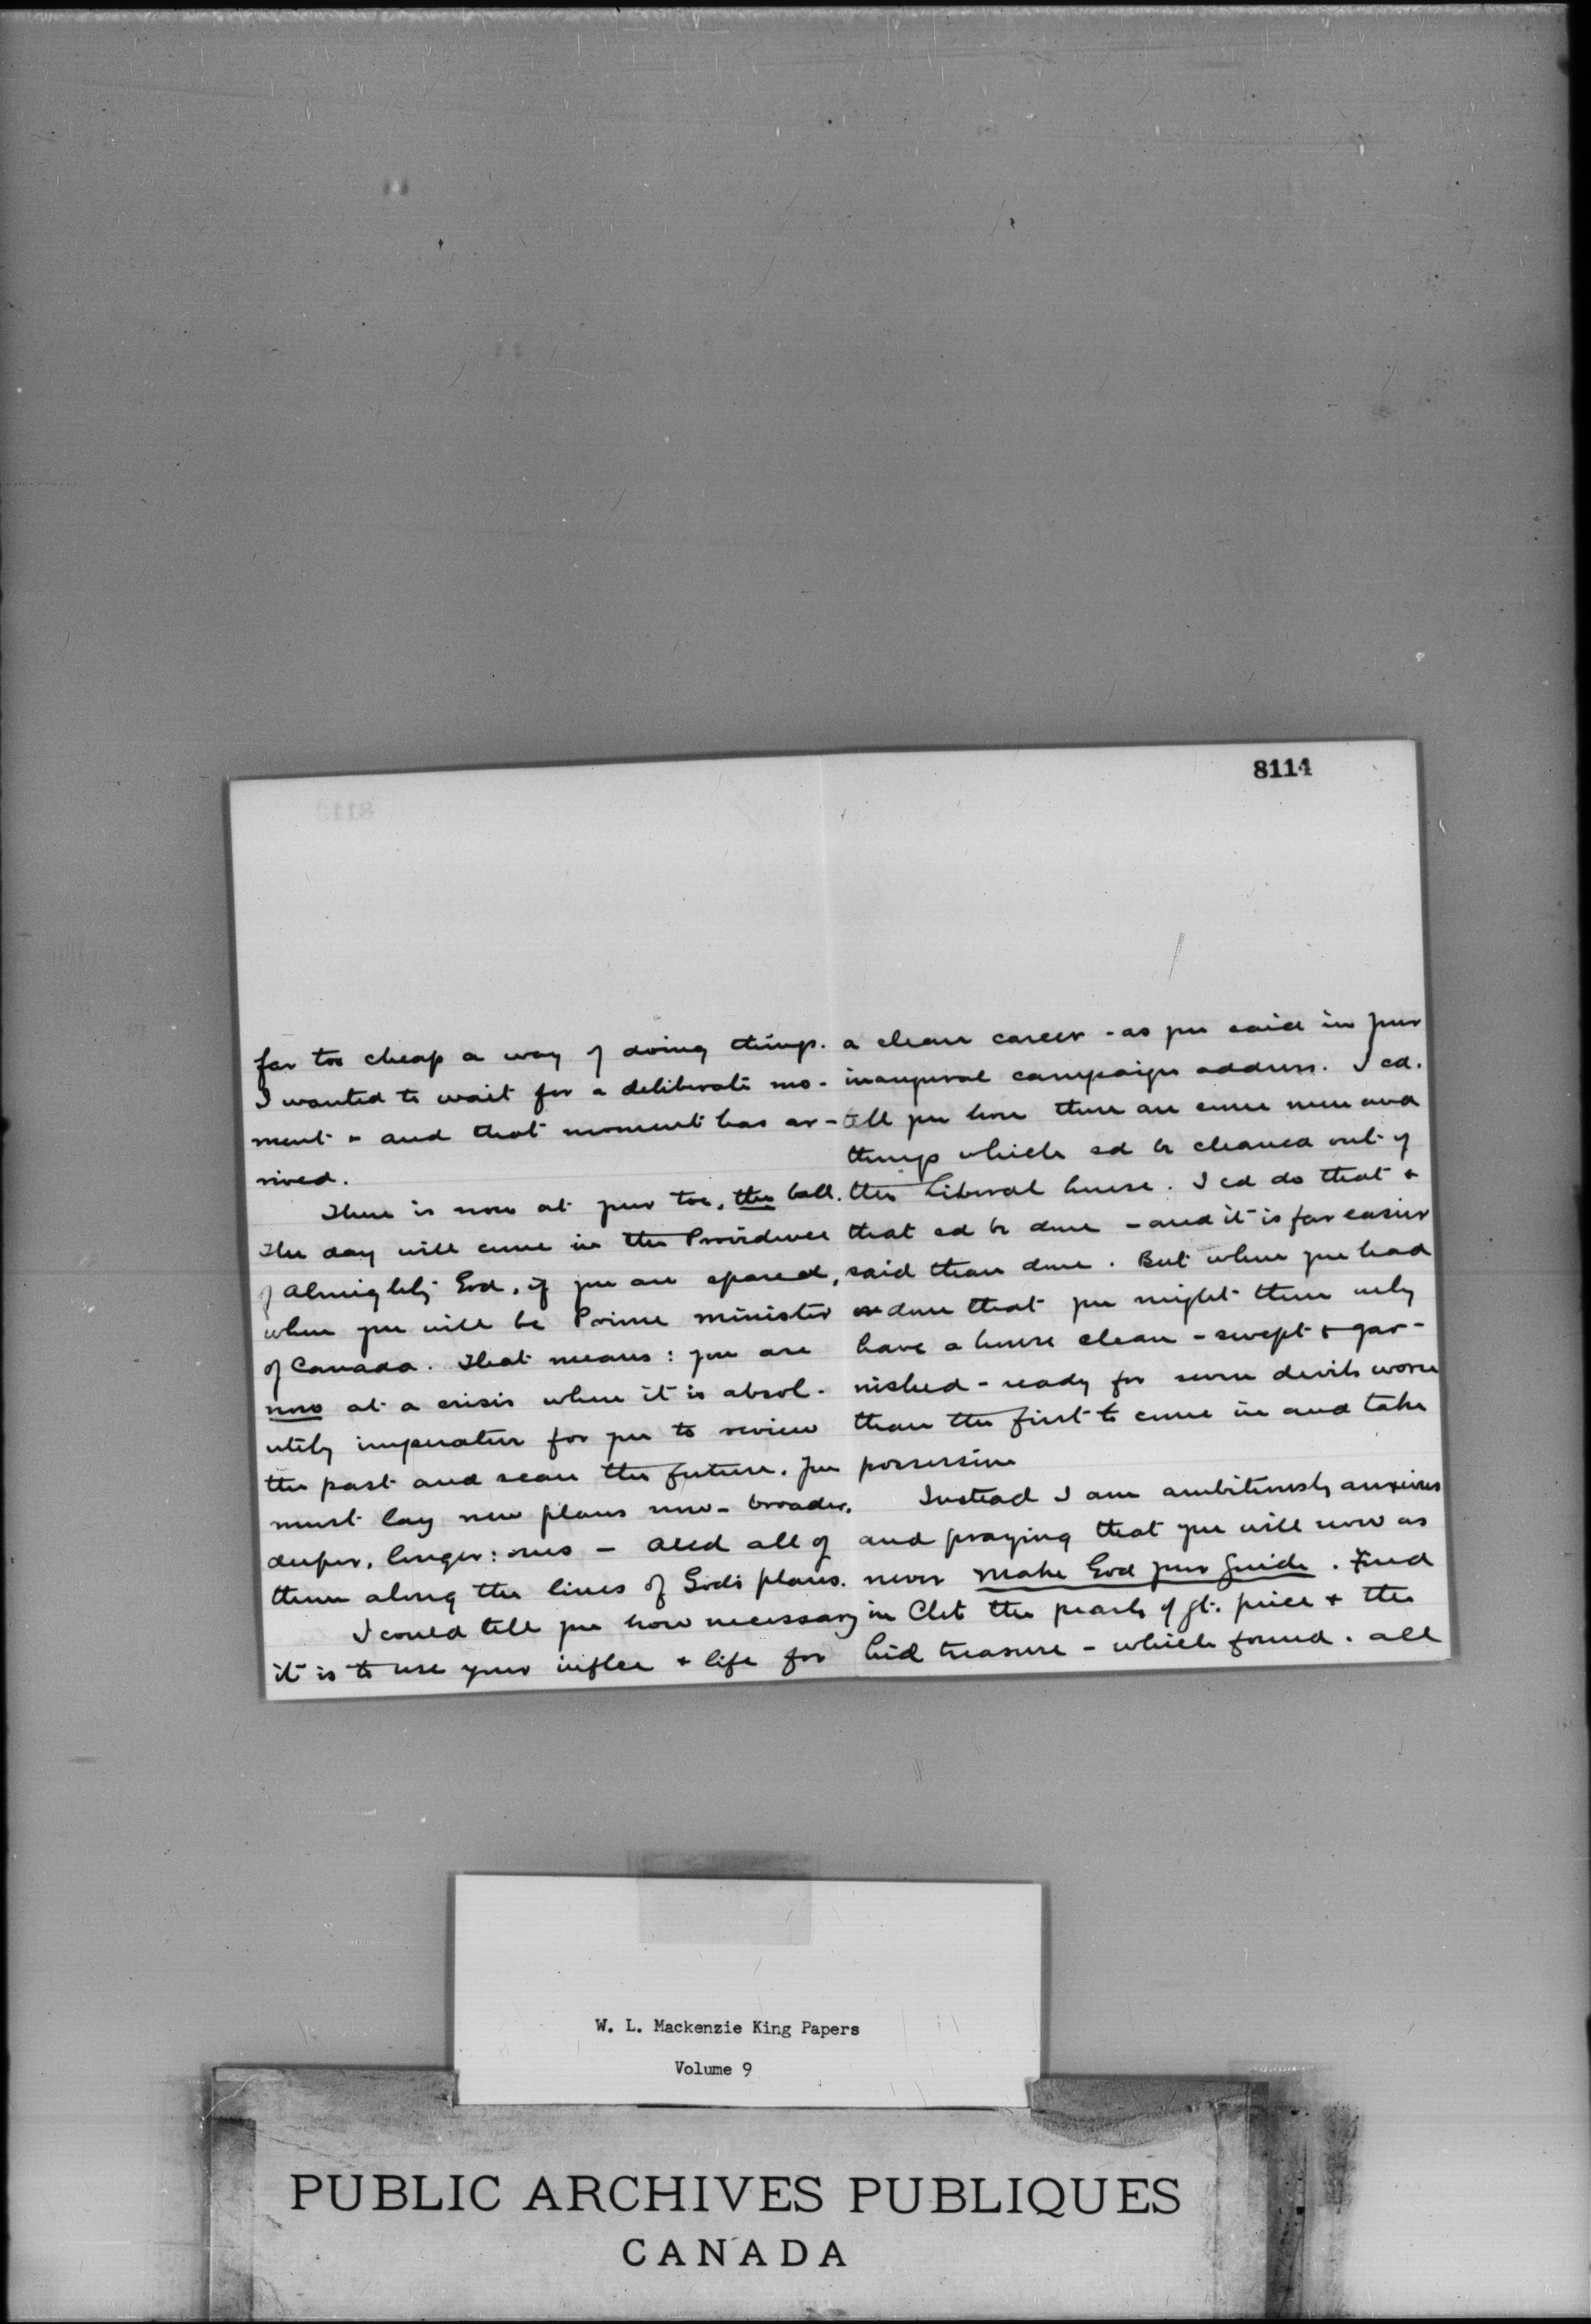 8114
far too cheap a way of doing things.
I wanted to wait for a deliberate mo-
ment - and that moment has ar-
rived.
There is now at your toe, the ball.
The day will come in the Providence
of Almighty God, if you are spared,
when you will be Prime Minister
of Canada. That means: you are
now at a crisis where it is absol-
utely imperative for you to review
the past and scan the future. You
must lay new plans now - broader,
deeper, longer: ones - and all of
them along the lines of God's plans.
I could tell you how necessary
it is to use your inflce & life for
a clean career - as you said in your
inaugural campaign address. I cd.
tell you how there are some men and
things which sd be cleaned out of
the Liberal house. I cd do that &
that sd be done - and it is far easier
said than done. But when you had
done that you might then only
have a house clean - swept & gar-
nished - ready for seven devils worse
than the first to come in and take
possession
Instead I am ambitiously anxious
and praying that you will now as
never make God your Guide. Find
in Christ the pearls of gt. price & the
hid treasure - which found. all
W. L. Mackenzie King Papers
Volume 9
PUBLIC ARCHIVES PUBLIQUES
CANADA